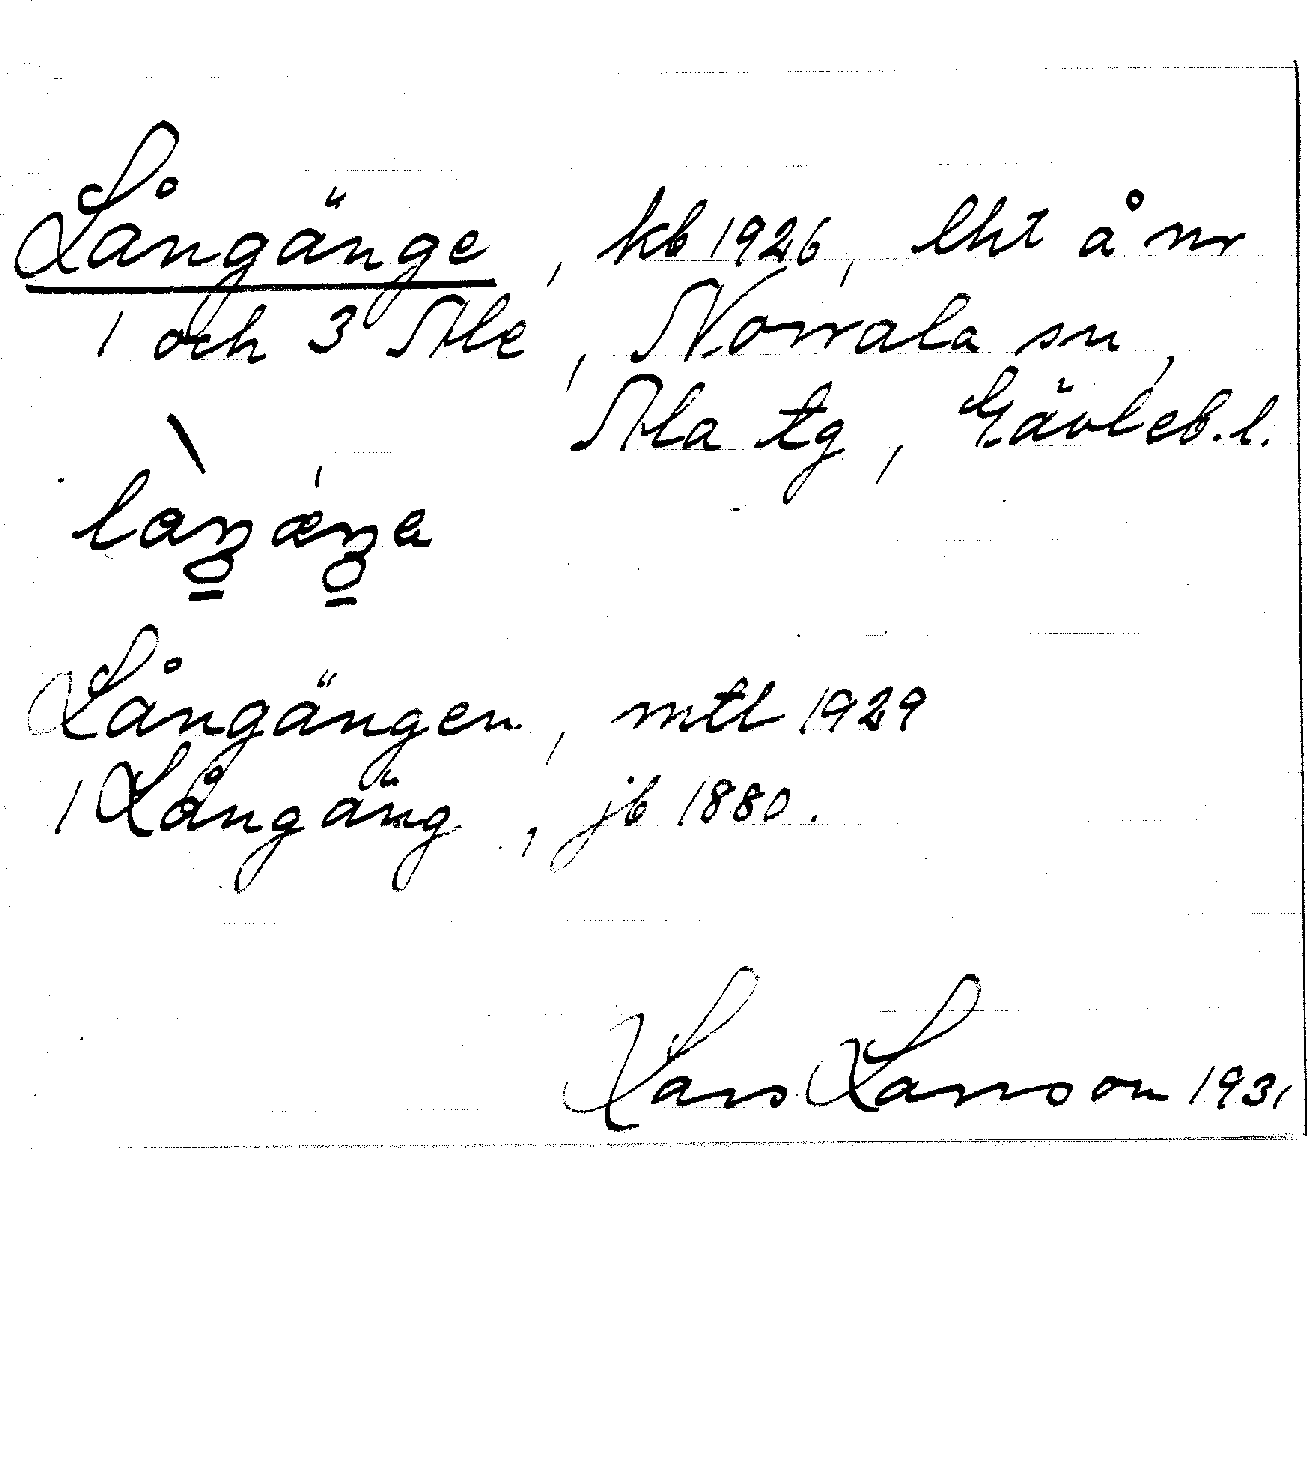 Långänge, kb 1926, lht å nr
1 och 3 Ale, Norrala sn,
Ala tg, Gävleb. l.
Långängen, mtl 1929
1 Långäng, jb 1880.
Lars Larsson 1931